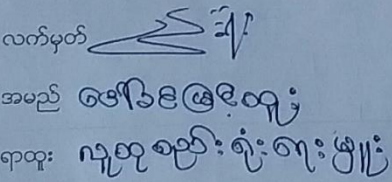 လက်မှတ်
အမည် ဒေါ်ခင်မြင့်ထူး
ရာထူး လူထုစည်းရုံးရေးမှူး